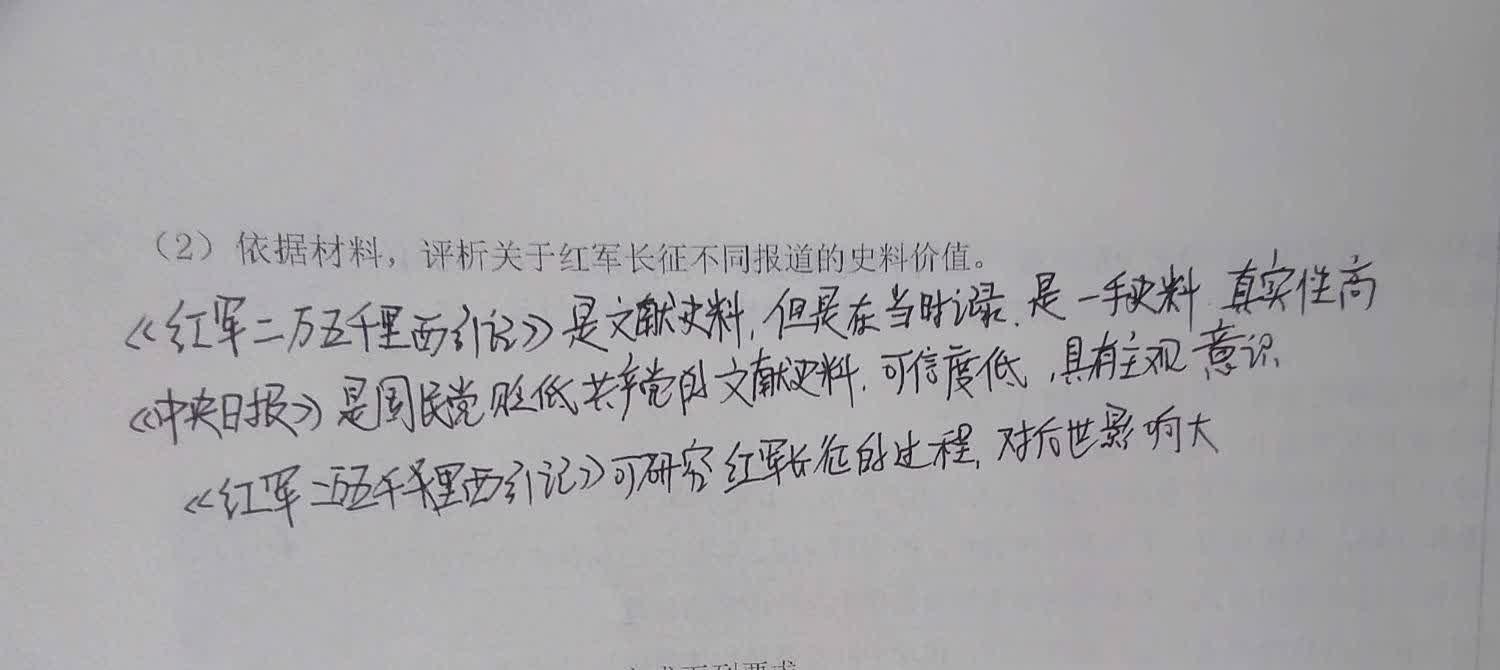 （2）依据材料，评析关于红军长征不同报道的史料价值。
《红军二万五千里西引记》是文献史料,但是在当时记录.是一手史料 真实性高
《中央日报》是国民党贬低共产党的文献史料.可信度低,具有主观意识
《红军二万五千里西引记》可研究红军长征的过程,对后世影响大